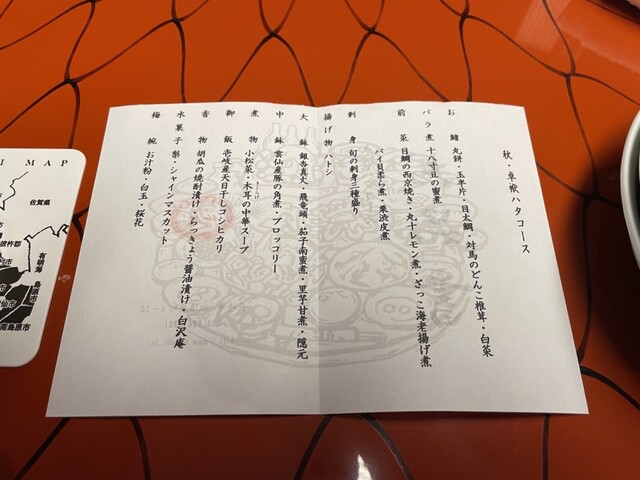 秋・卓袱ハタコース
お鰭 丸餅・玉半片・目太鯛・対馬のどんこ椎茸・白菜
バラ煮 十八寸豆の蜜煮
前菜 目鯛の西京焼き・丸十レモン煮・ざっこ海老揚げ煮
バイ貝柔ら煮・栗渋皮煮
刺身 旬の刺身三種盛り
揚げ物 ハトシ
大鉢 銀杏真丈・飛竜頭・茄子南蜜煮・里芋甘煮・隠元
中鉢 雲仙産豚の角煮・ブロッコリー
煮物 小松菜・木耳の中華スープ
きくらげ
御飯 壱岐産天日干しコシヒカリ
香物 胡瓜の焼酎漬け・らっきょう醤油漬け・白沢庵
水菓子 梨・シャインマスカット
梅椀 お汁粉・白玉・桜花
MAP
佐賀県
有明海
島原市
南島原市